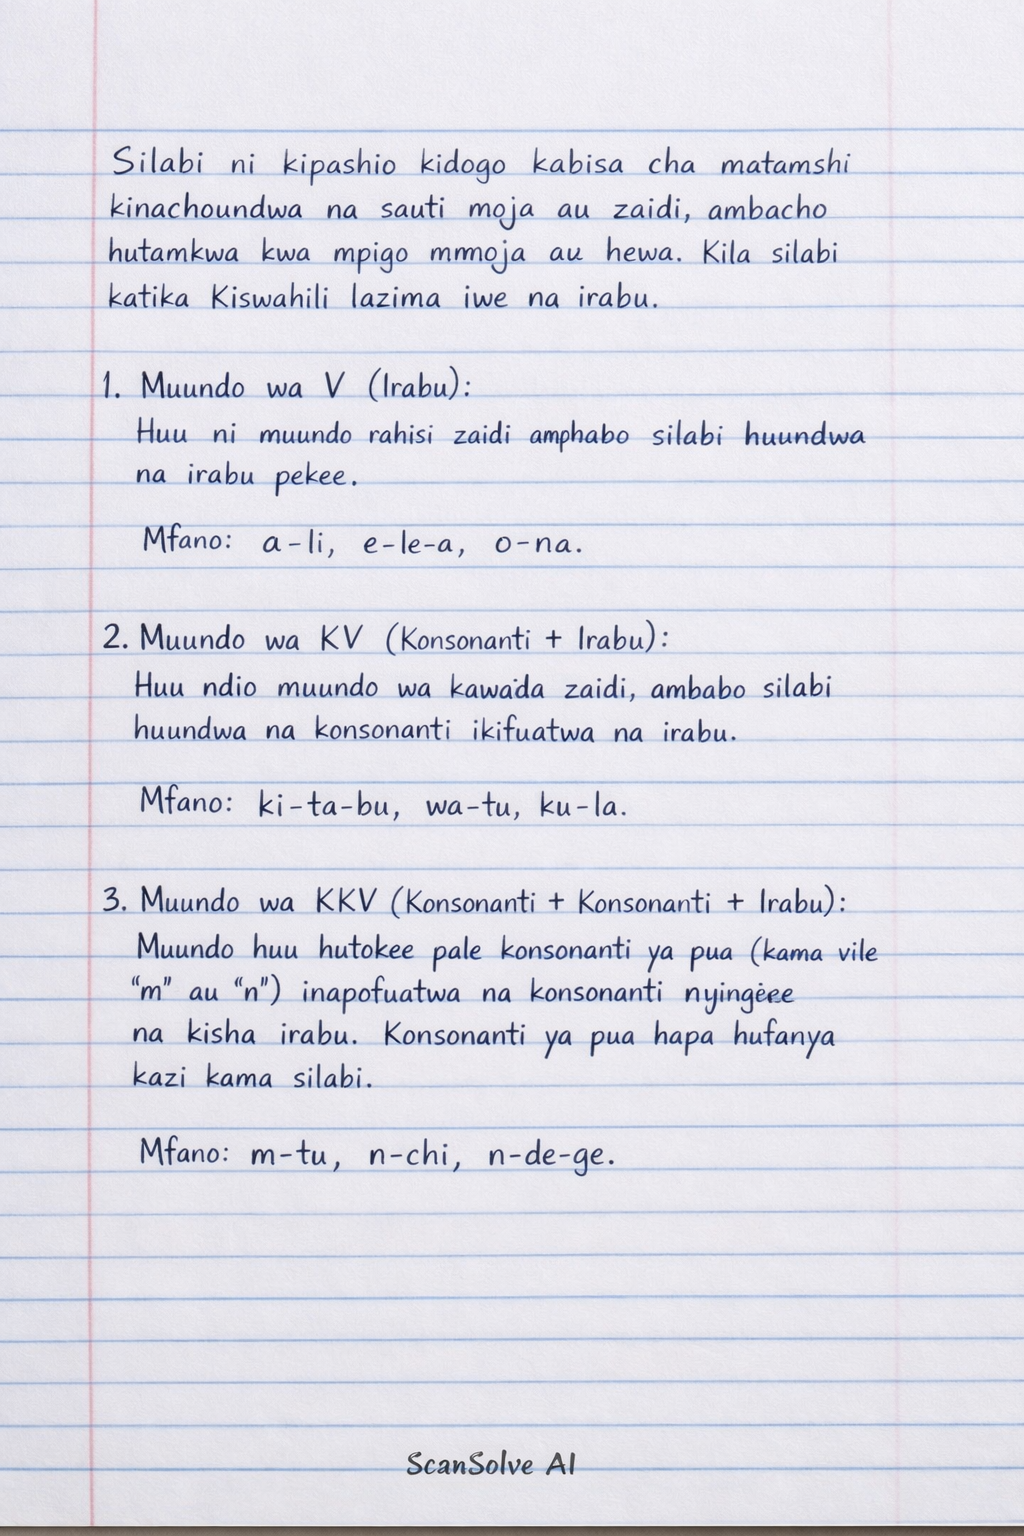 Silabi ni kipashio kidogo kabisa cha matamshi
kinachoundwa na sauti moja au zaidi, ambacho
hutamkwa kwa mpigo mmoja au hewa. Kila silabi
katika Kiswahili lazima iwe na irabu.
1. Muundo wa V (Irabu):
Huu ni muundo rahisi zaidi amphabo silabi huundwa
na irabu pekee.
Mfano: a-li, e-le-a, o-na.
2. Muundo wa KV (Konsonanti + Irabu):
Huu ndio muundo wa kawaida zaidi, ambabo silabi
huundwa na konsonanti ikifuatwa na irabu.
Mfano: ki-ta-bu, wa-tu, ku-la.
3. Muundo wa KKV (Konsonanti + Konsonanti + Irabu):
Muundo huu hutokee pale konsonanti ya pua (kama vile
"m" au "n") inapofuatwa na konsonanti
na kisha irabu. Konsonanti ya pua hapa hufanya
kazi kama silabi.
Mfano: m-tu, n-chi, n-de-ge.
ScanSolve AI